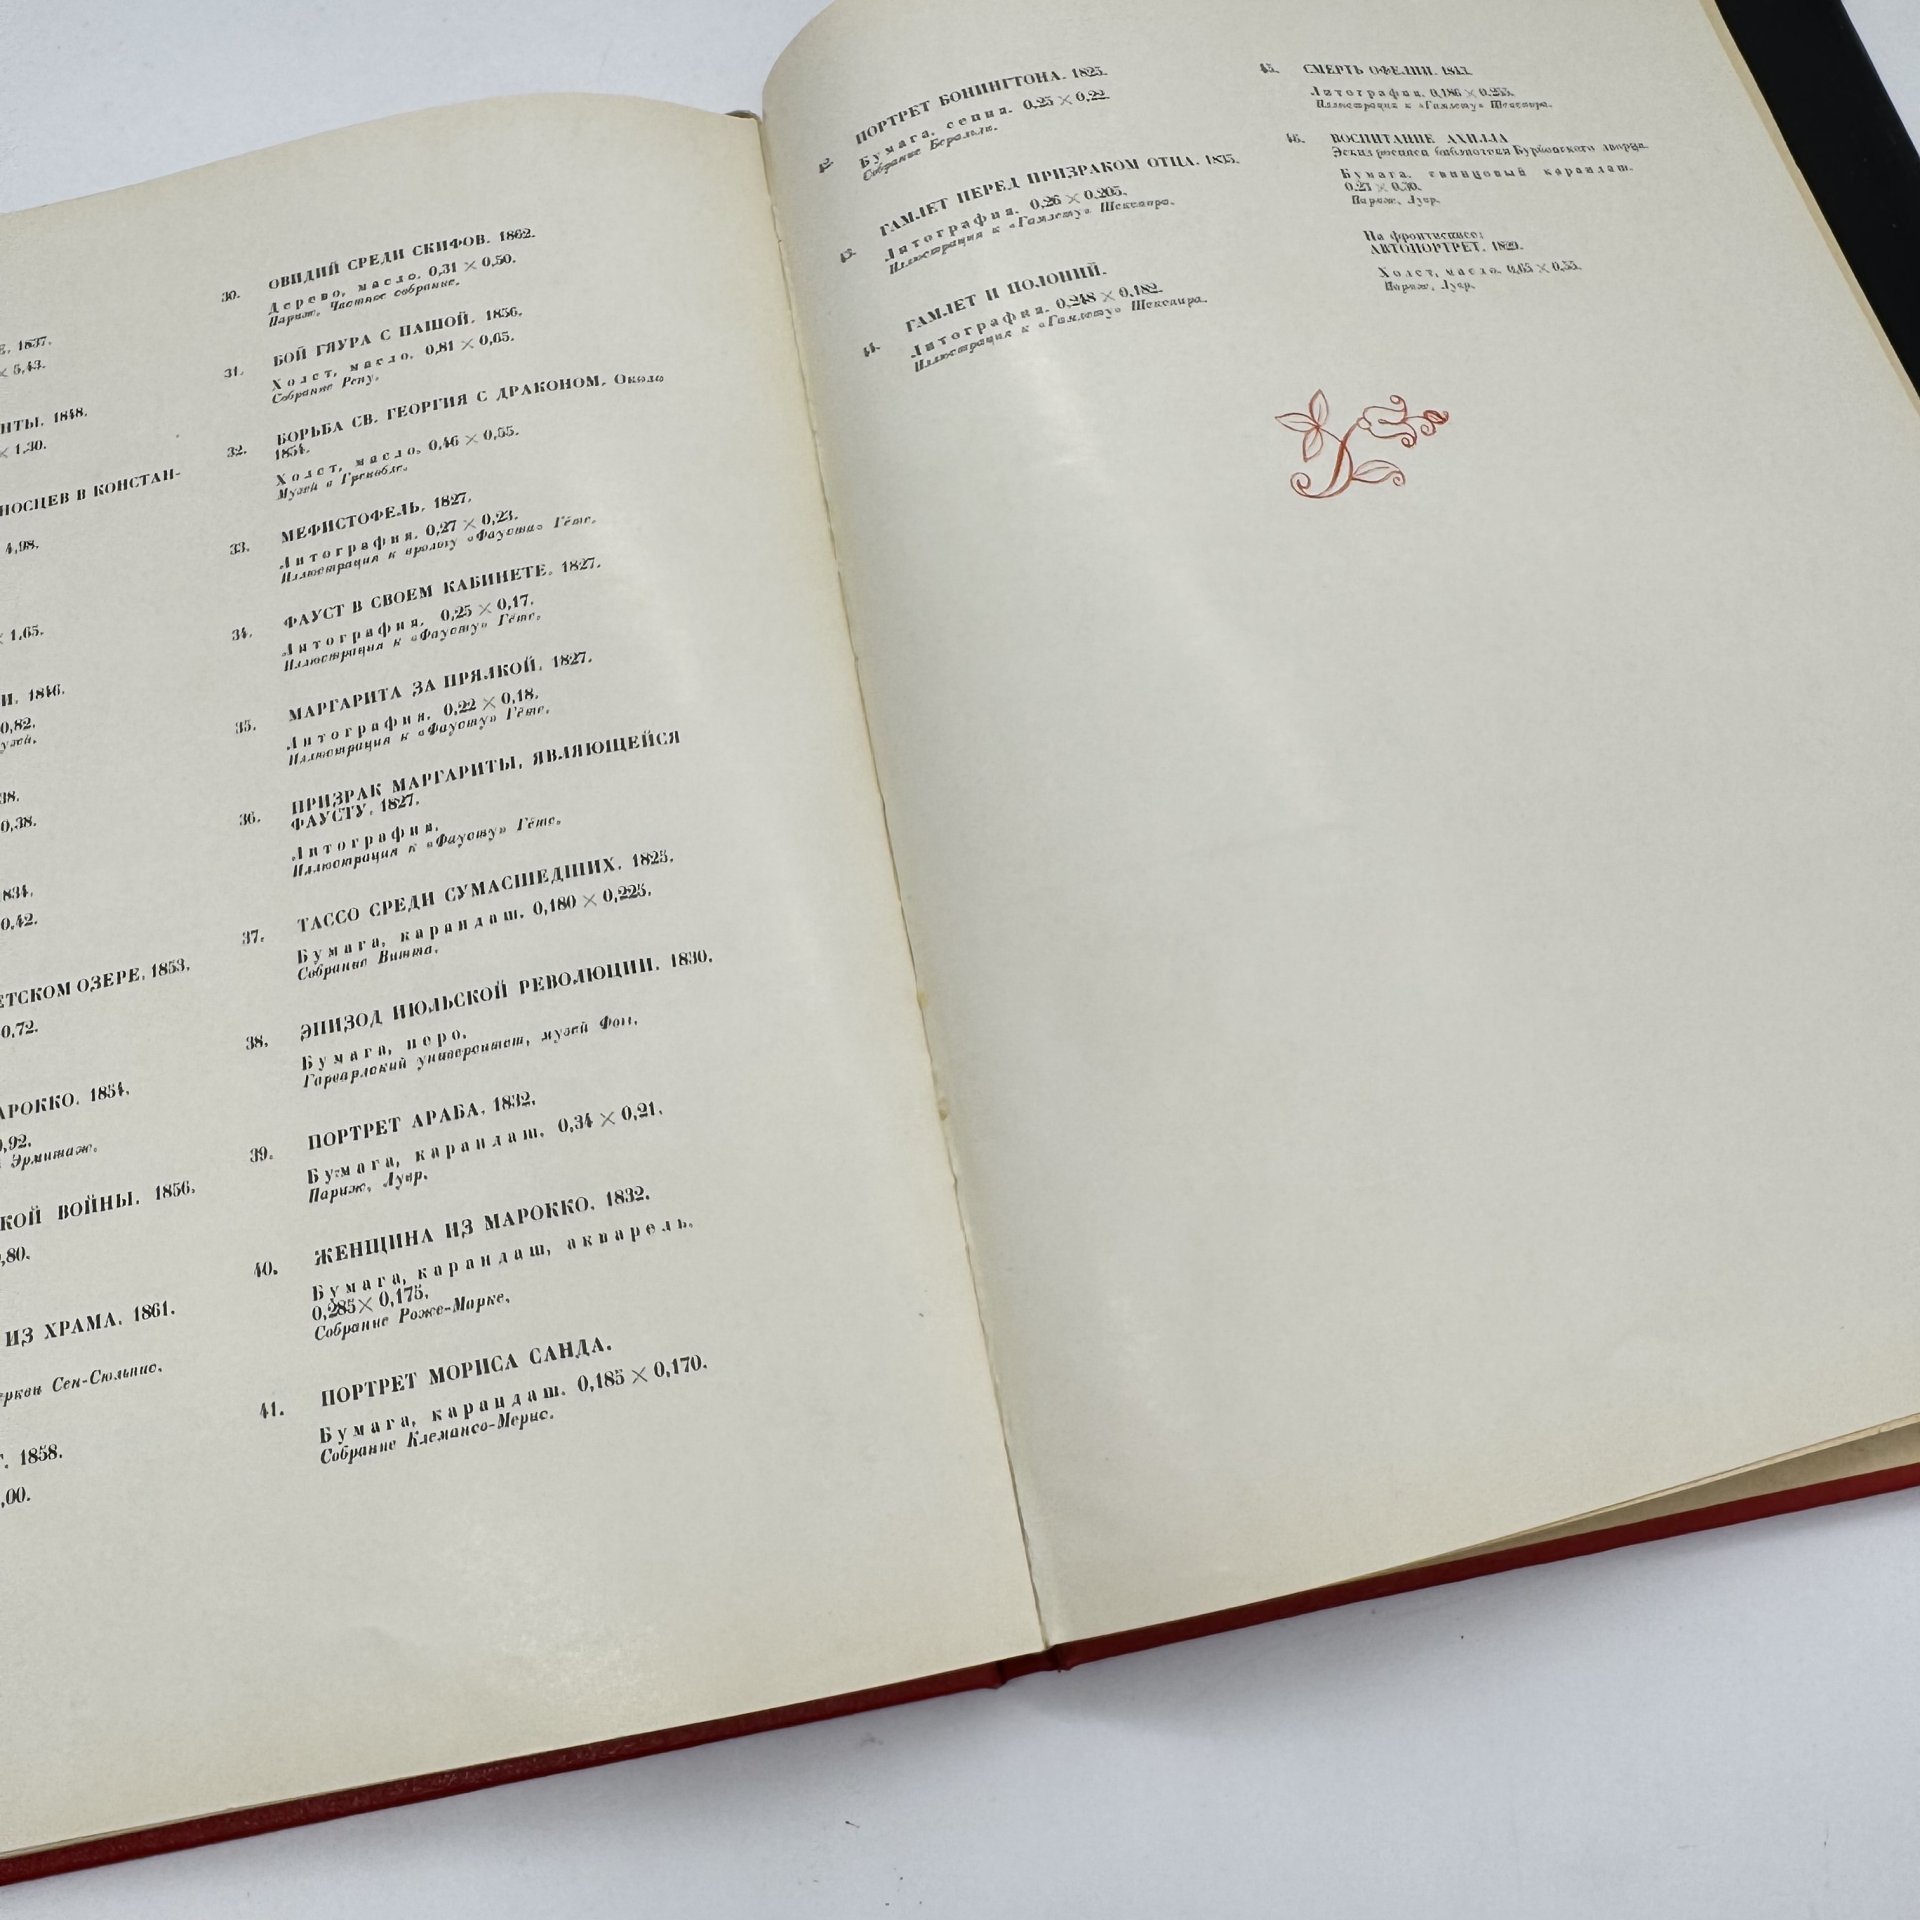 Е. 1837.
× 5,43.
НТЫ. 1848.
× 1,30.
НОСЦЕВ В КОНСТАН-
4,98.
× 1,65.
И. 1846.
0,82.
38.
0,38.
1834.
0,42.
ЕТСКОМ ОЗЕРЕ. 1853.
0,72.
АРОККО. 1854.
0,92.
Эрмитаж.
КОЙ ВОЙНЫ. 1856.
,80.
ИЗ ХРАМА. 1861.
еркви Сен-Сюльпис.
Г. 1858.
,00.
30. ОВИДИЙ СРЕДИ СКИФОВ. 1862.
Дерево, масло. 0,31 × 0,50.
Париж. Частное собрание.
31. БОЙ ГЯУРА С ПАШОЙ. 1856.
Холст, масло. 0,81 × 0,65.
Собрание Рену.
32. БОРЬБА СВ. ГЕОРГИЯ С ДРАКОНОМ. Около
1854.
Холст, масло. 0,46 × 0,55.
Музей в Гренобле.
33. МЕФИСТОФЕЛЬ. 1827.
Литография. 0,27 × 0,23.
Иллюстрация к прологу «Фауста» Гёте.
34. ФАУСТ В СВОЕМ КАБИНЕТЕ. 1827.
Литография. 0,25 × 0,17.
Иллюстрация к «Фаусту» Гёте.
35. МАРГАРИТА ЗА ПРЯЛКОЙ. 1827.
Литография. 0,22 × 0,18.
Иллюстрация к «Фаусту» Гёте.
36. ПРИЗРАК МАРГАРИТЫ, ЯВЛЯЮЩЕЙСЯ
ФАУСТУ. 1827.
Литография.
Иллюстрация к «Фаусту» Гёте.
37. ТАССО СРЕДИ СУМАСШЕДШИХ. 1825.
Бумага, карандаш. 0,180 × 0,225.
Собрание Витта.
38. ЭПИЗОД ИЮЛЬСКОЙ РЕВОЛЮЦИИ. 1830.
Бумага, перо.
Гарвардский университет, музей Фог.
39. ПОРТРЕТ АРАБА. 1832.
Бумага, карандаш. 0,34 × 0,21.
Париж, Лувр.
40. ЖЕНЩИНА ИЗ МАРОККО. 1832.
Бумага, карандаш, акварель.
0,285 × 0,175.
Собрание Роже-Марке.
41. ПОРТРЕТ МОРИСА САНДА.
Бумага, карандаш. 0,185 × 0,170.
Собрание Клемансо-Мерис.
42. ПОРТРЕТ БОНИНГТОНА. 1825.
Бумага, сепия. 0,25 × 0,22.
Собрание
43. ГАМЛЕТ ПЕРЕД ПРИЗРАКОМ ОТЦА. 1835.
Литография. 0,26 × 0,205.
Иллюстрация к «Гамлету» Шекспира.
44. ГАМЛЕТ И ПОЛОНИЙ.
Литография. 0,248 × 0,182.
Иллюстрация к «Гамлету» Шекспира.
45. СМЕРТЬ ОФЕЛИИ. 1843.
Литография. 0,186 × 0,255.
Иллюстрация к «Гамлету» Шекспира.
46. ВОСПИТАНИЕ АХИЛЛА
Эскиз росписи библиотеки Бурбонского дворца.
Бумага, свинцовый карандаш.
0,23 × 0,30.
Париж, Лувр.
На фронтисписе:
АВТОПОРТРЕТ. 1829.
Холст, масло. 0,65 × 0,55.
Париж, Лувр.